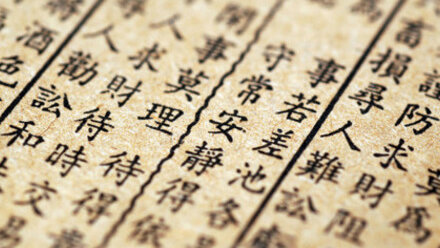 莫為
防求財阻
畜損尋人難訟
事若差池各
守常安靜得依
事莫理待得
人求財待時
勸訟和交
酒色